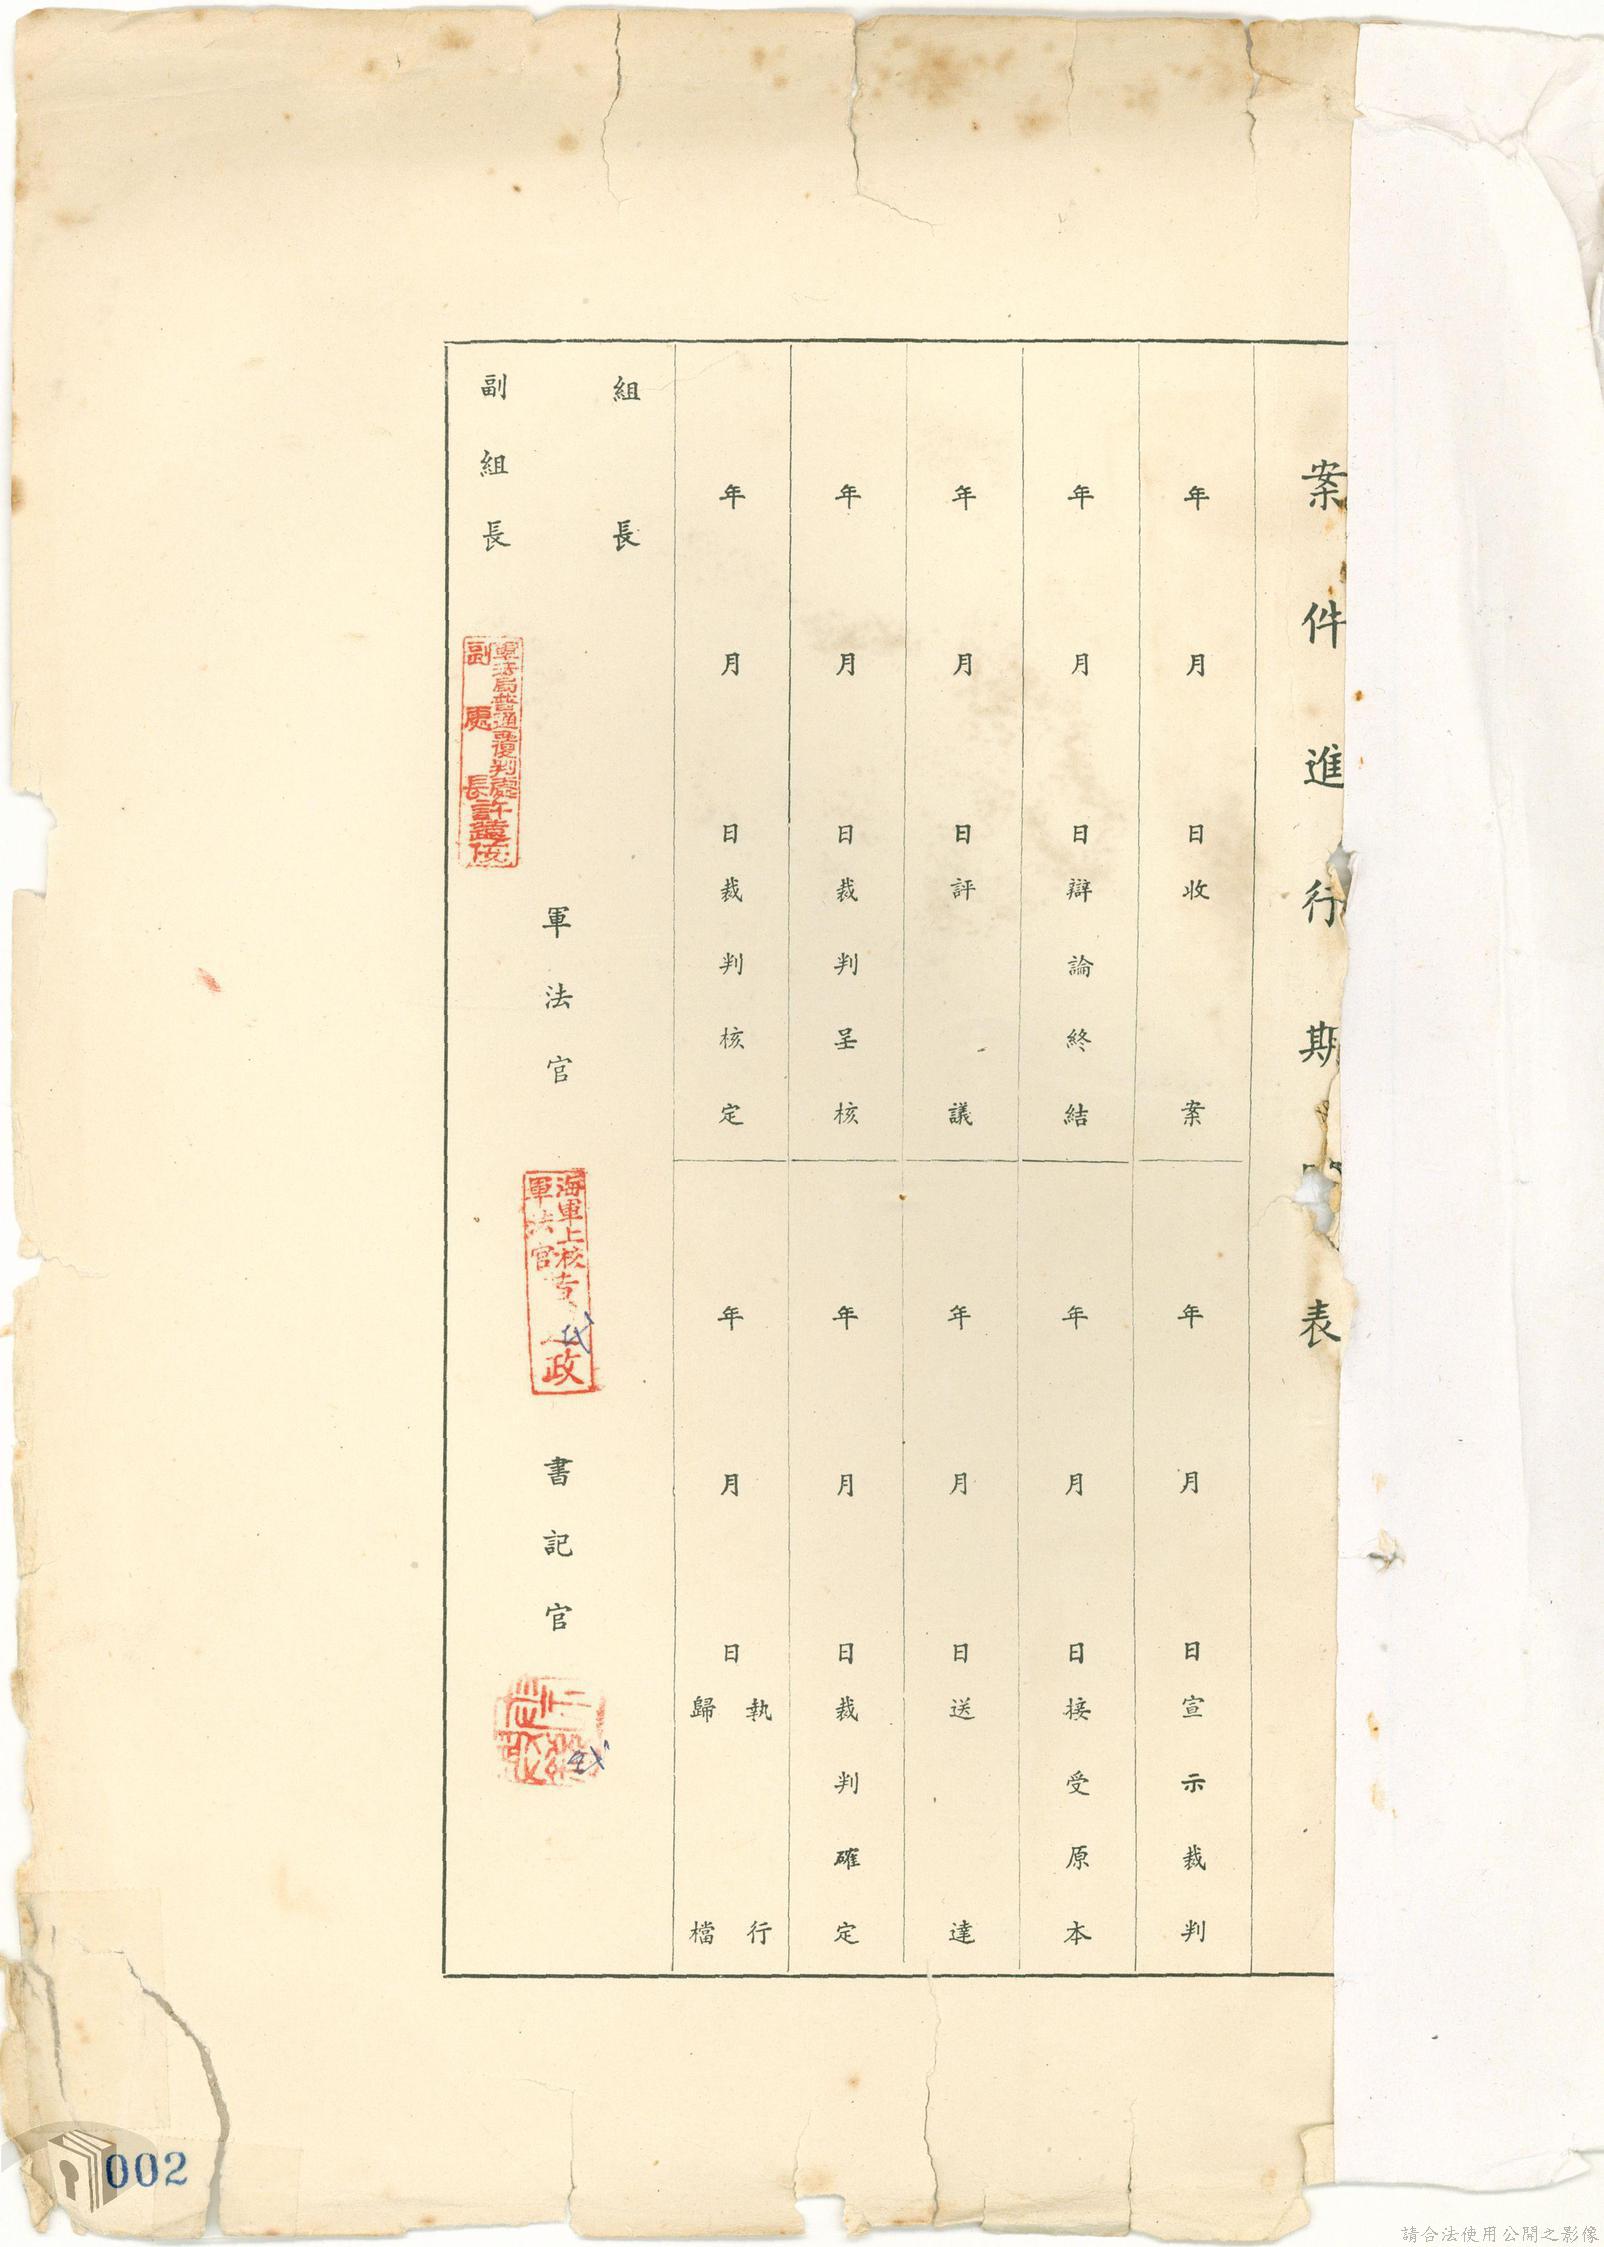 案件進行期表
年月日收案
年月日宣示裁判
年月日辯論終結
年月日接受原本
年月日評議
年月日送達
年月日裁判呈核
年月日裁判確定
年月日裁判核定
年月日執行
歸檔
組長
副組長
軍法局普通覆判處
副處長許
軍法官
海軍上校
軍法官
政
代
書記官
代
002
請合法使用公開之影像